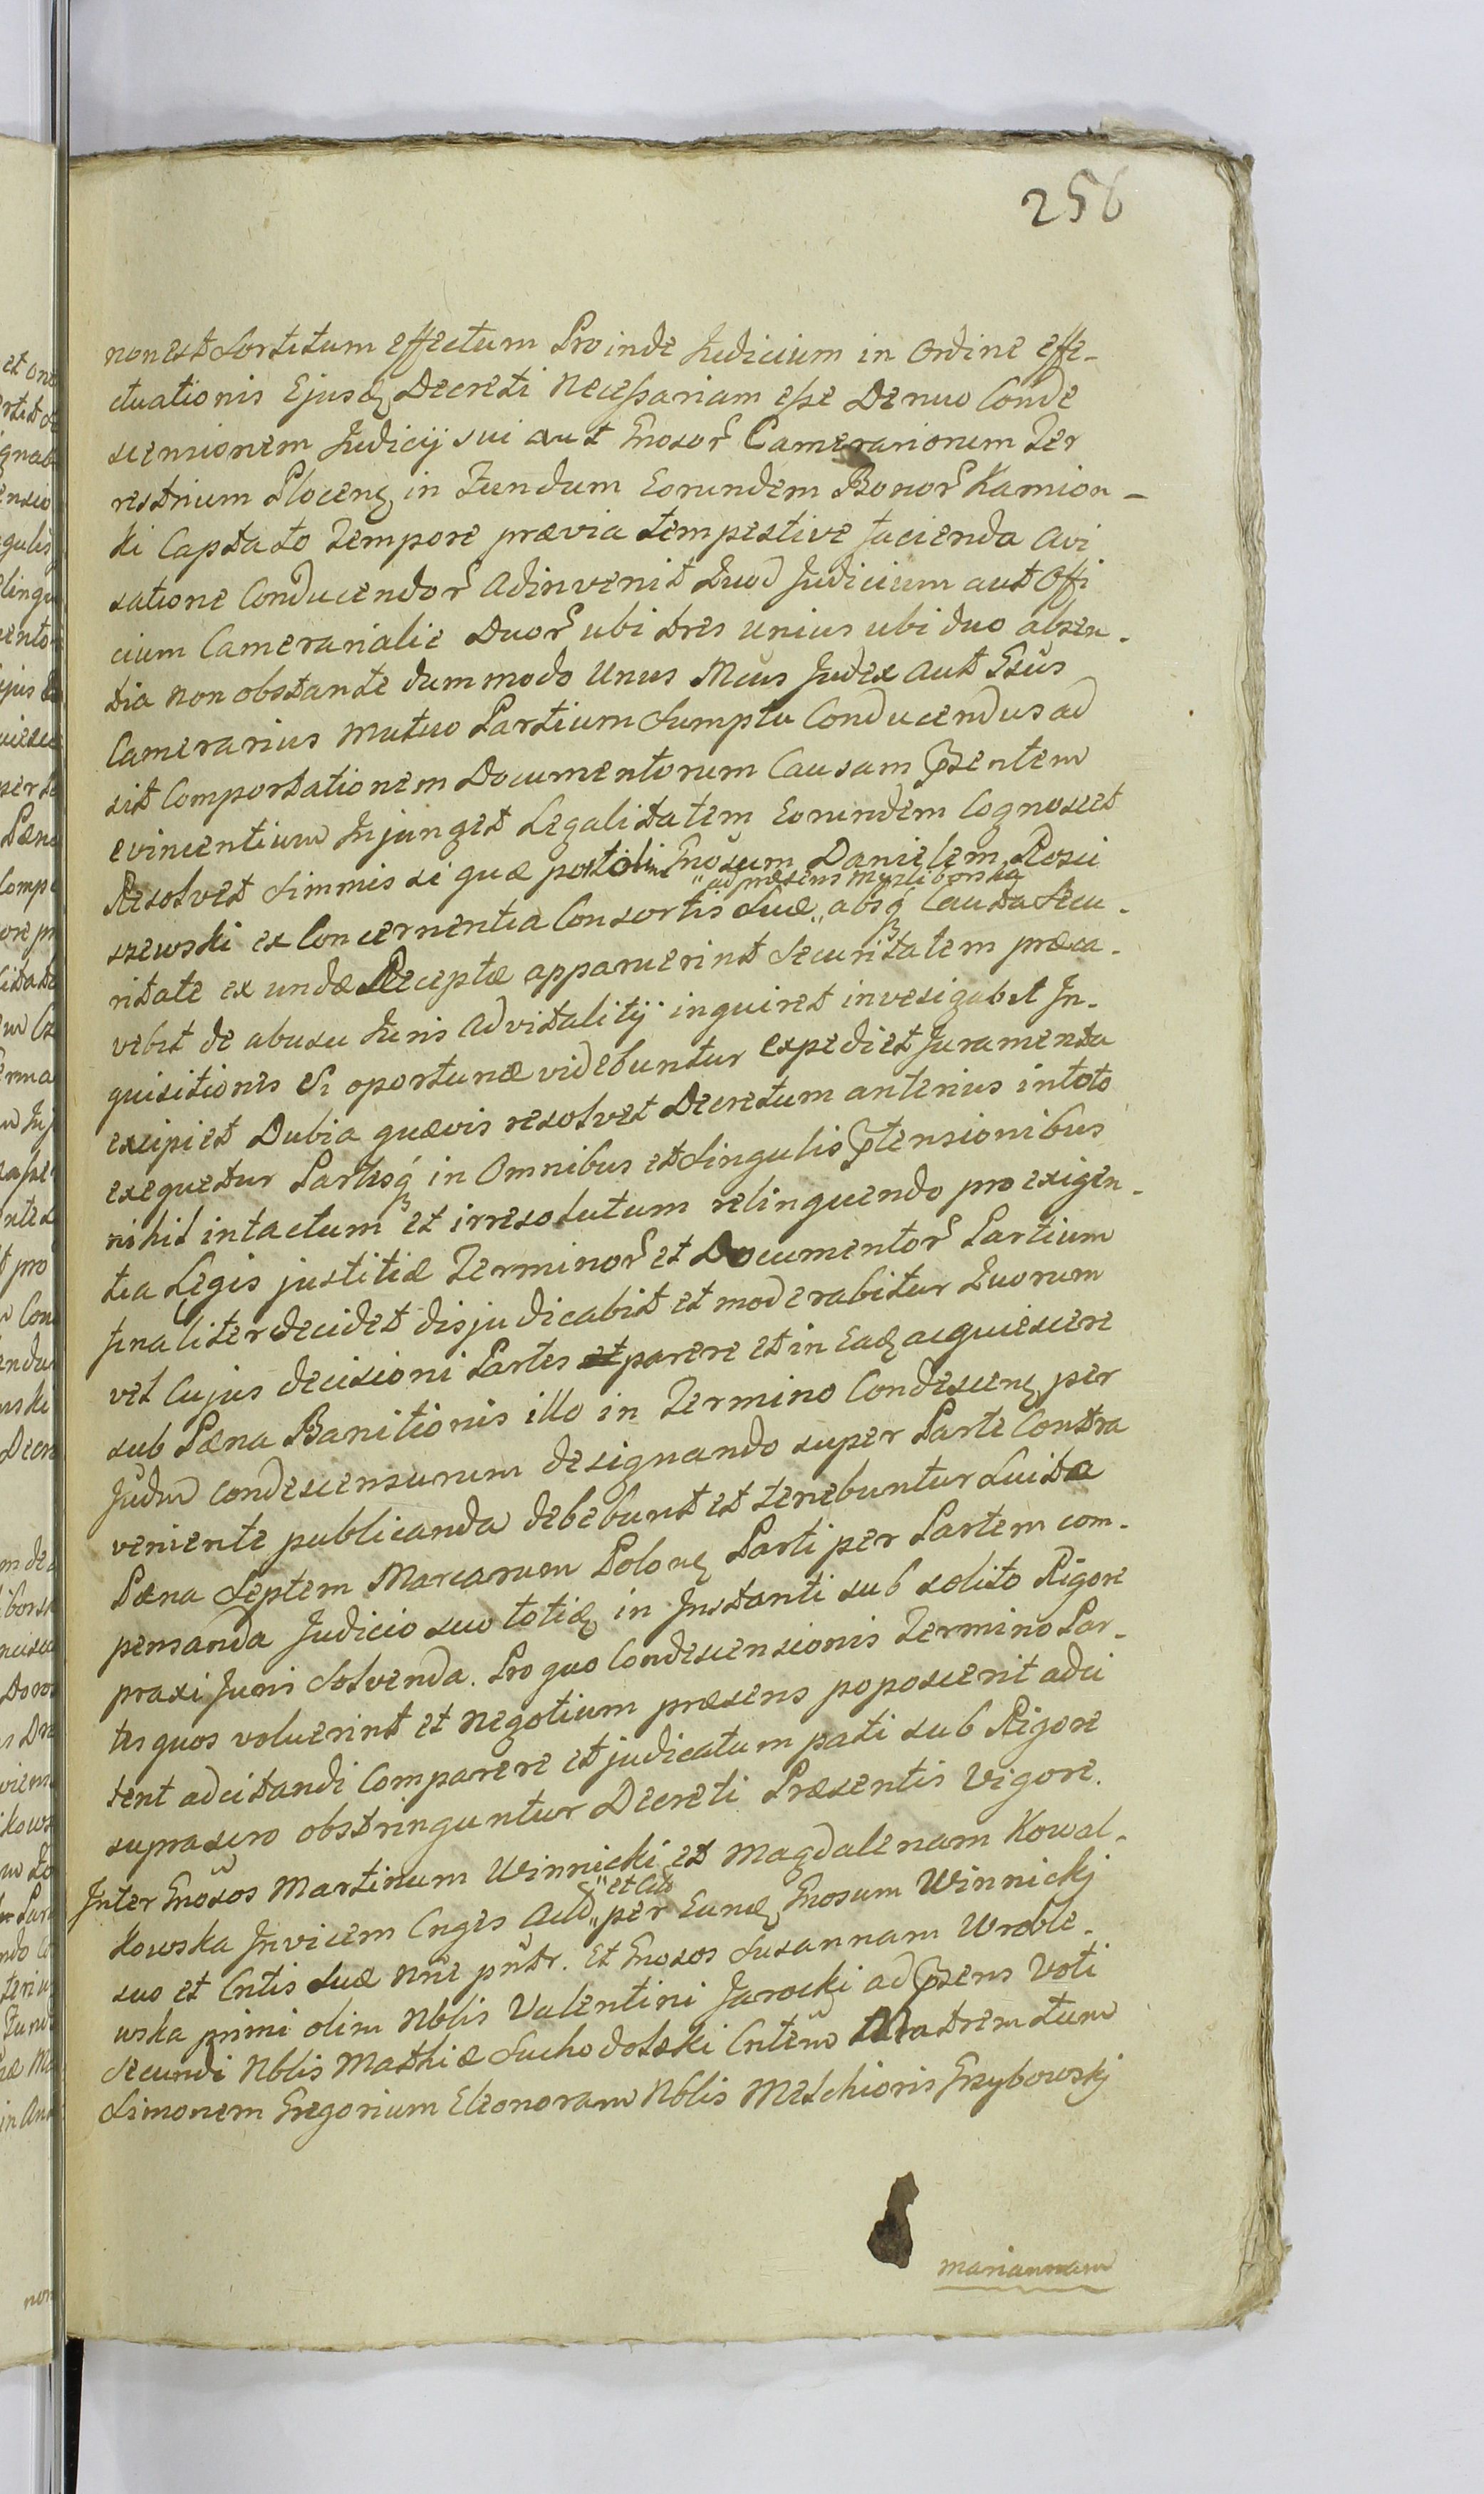 258
non est Sortitum effectum Proinde Judicium in Ordine effe-
ctuationis Ejusd Decreti Necessariam esse Denuo Conde
scensionem Judicij sui aut Gnosor Camerariorum Ter
restrium Plocens in Fundum Eorundem Bonor Kamion-
ki Captato Tempore prævia tempestive facienda Avi
satione Conducendor Adinvenit Quod Judicium aut Offi
cium Camerariale Duor ubi tres unius ubi duo absen-
tia non obstante dummodo Unus Mcus Judex aut Gsus
Camerarius mutuo Partium Sumptu Conducendus ad
sit Comportationem Documentorum Causam Psentem
evincentium Injunget Legalitatem Eorundem Cognoscet
Resolvet Simmis si quæ post olim Gnosum Danielem Rosci
"ad præsens Mysliborska
szewski ex Concernentia Consortis Suæ " absq Cauta Secu-
ritate ex undæ Receptæ apparuerint Securitatem præca-
vebit de abusu Juris Advitalitij inquiret invesigabit In-
quisitiones si oportunæ videbuntur expediet Juramenta
excipiet Dubia quævis resolvet Decretum anterius in toto
exequetur Partesq in Omnibus et Singulis Ptensionibus
nihil intactum et irresolutum relinquendo pro exigen-
tia Legis justitiæ Terminor et Documentor Partium
finaliter decidet disjudicabit et moderabitur Quorum
vel Cujus decisioni Partes et parere et in Ead acquiescere
sub Pæna Banitionis illo in Termino Condescens per
Judm condescensurum designando super Parte Contra
veniente publicanda debebunt et tenebuntur Luita
Pæna Septem Marcarum Polon Parti per Partem com-
pensanda Judicio suo totid in Instanti sub solito Rigore
praxi Juris Solvenda. Pro quo Condescensionis Termino Par-
tes quos voluerint et Negotium præsens poposcerit adci
tent adcitandi Comparere et judicatum pati sub Rigore
suprascro obstringuntur Decreti Præsentis Vigore.
Inter Gnosos Martinum Winnicki et Magdalenam Kowal-
" et Cito
kowska Invicem Cnges Act " per Eund Gnosum Winnickj
suo et Cntis Suæ Nne pntr. Et Gnosos Susannam Wroble-
wska primi olim Nblis Valentini Jarocki ad Psens Voti
Secundi Nblis Mathiæ Suchodolski Cntem Matrem tum
Simonem Gregorium Eleonoram Nblis Melchioris Grzybowskj
mariannam